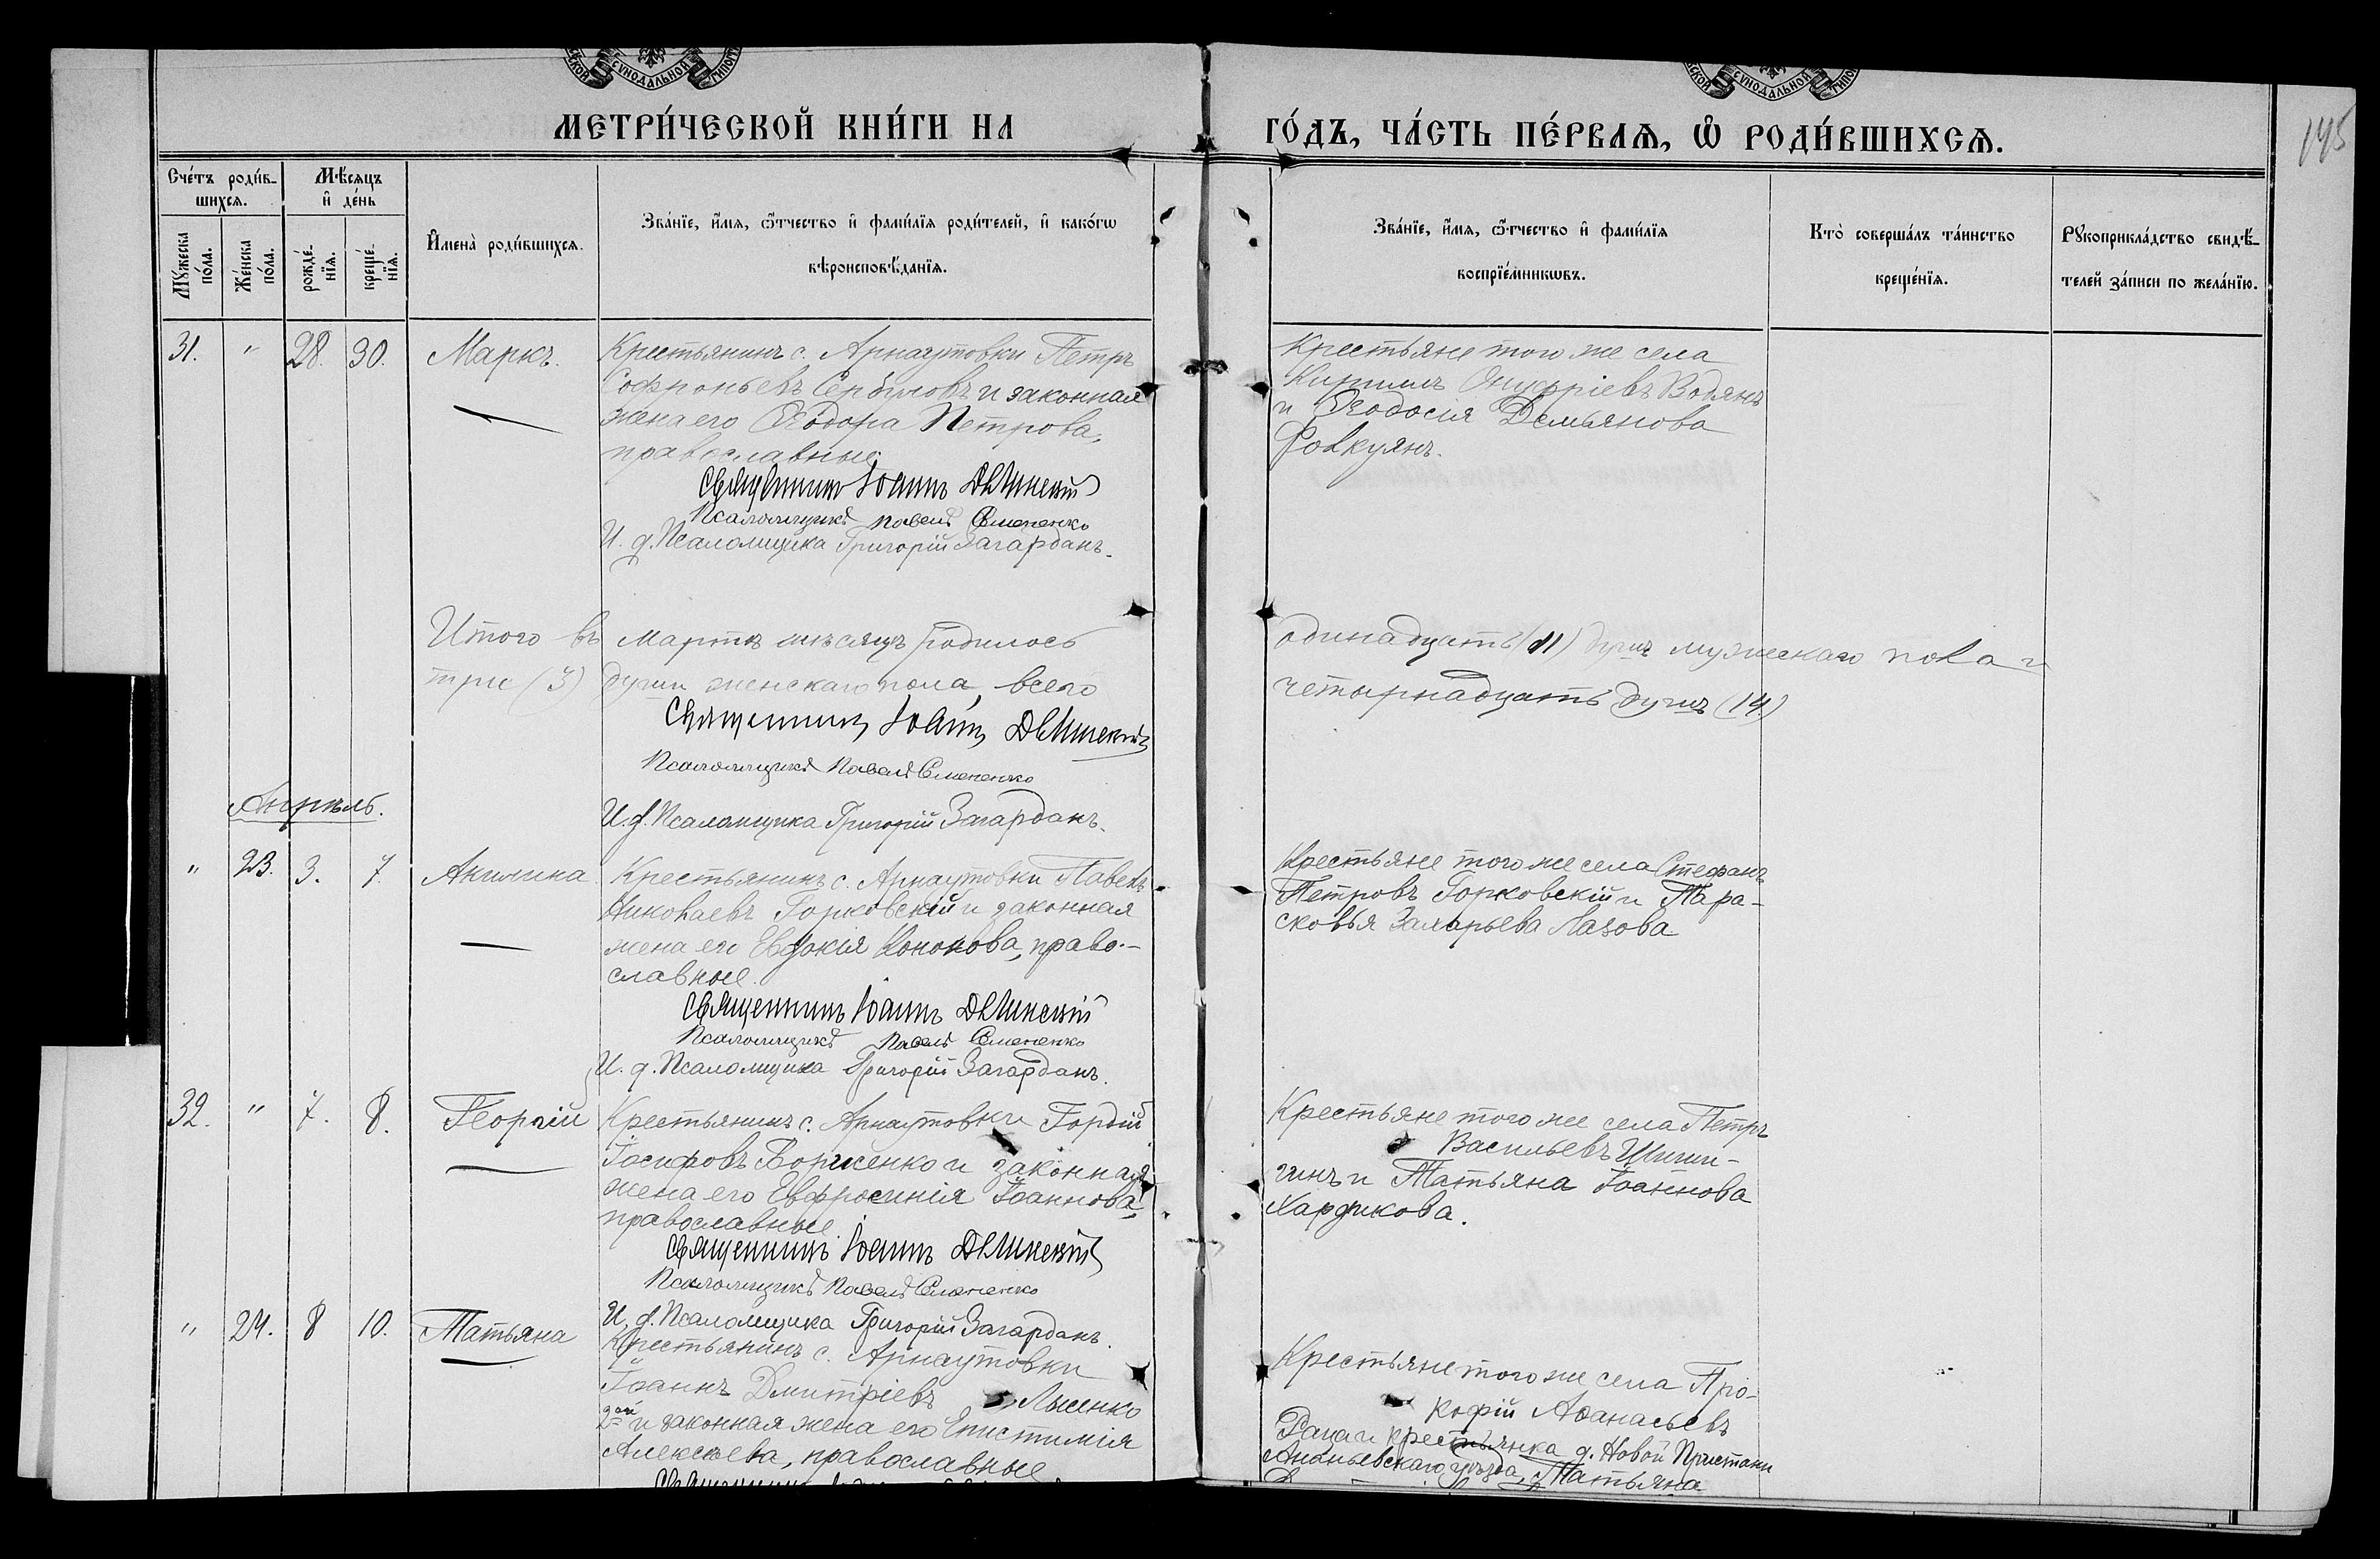 СУНОДАЛЬНОЙ
СУНОДАЛЬНОЙ
МЕТРИ́ЧЕСКОЙ КНИ́ГИ НА
ГО́ДЪ, ЧА́СТЬ ПЕ́РВАѦ, Ѽ РОДИ́ВШИХСѦ.
145
Сче́тъ роди́в-
шихсѧ.
Мѣ́сѧцъ
и҆ де́нь
Мꙋ́жеска
по́ла.
Же́нска
по́ла.
рожде́-
нїѧ.
креще́-
нїѧ.
И҆мена̀ роди́вшихсѧ.
Зва́нїе, и҆́мѧ, ѻ҆́тчество и҆ фами́лїѧ роди́телей, и҆ како́гѡ
вѣроисповѣ́данїѧ.
Зва́нїе, и҆́мѧ, ѻ҆́тчество и҆ фами́лїѧ
воспрїе́мникѡвъ.
Кто̀ соверша́лъ та́инство
креще́нїѧ.
Рꙋкоприкла́дство свидѣ́-
телей за́писи по жела́нїю.
31. " 28. 30. Маркъ.
Крестьянинъ с. Арнаутовки Петръ
Софроньевъ Сербуловъ и законная
жена его Ѳеодора Петрова,
православные.
Священникъ Іоаннъ
Псаломщикъ Павелъ Семененко
И. д. Псаломщика Григорій Загарданъ.
Крестьяне того же села
Кириллъ Онуфріевъ Водянъ
и Ѳеодосія Демьянова
Итого въ Мартѣ мѣсяцѣ родилось
три (3) души женскаго пола, всего
одинадцать (11) душъ мужескаго пола и
четырнадцать душъ (14)
Священникъ Іоаннъ
Псаломщикъ Павелъ Семененко
И. д. Псаломщика Григорій Загарданъ.
Апрѣль.
" 23. 3. 7. Акилина
Крестьянинъ с. Арнаутовки Павелъ
Николаевъ Горковскій и законная
жена его Евдокія Кононова, право-
славные.
Священникъ Іоаннъ
Псаломщикъ Павелъ Семененко
И. д. Псаломщика Григорій Загарданъ.
Крестьяне того же села Стефанъ
Петровъ Горковскій и Пара-
сковья Захарьева Лазова
32. " 7. 8. Георгій
Крестьянинъ с. Арнаутовки Гордій
Іосифовъ Борженко и законная
жена его Евфросинія Іоаннова,
православные.
Священникъ Іоаннъ
Псаломщикъ Павелъ Семененко
И. д. Псаломщика Григорій Загарданъ.
Крестьяне того же села Петръ
Васильевъ Шиши-
гинъ и Татьяна Іоаннова
Хардикова.
" 24. 8 10. Татьяна
Крестьянинъ с. Арнаутовки
Іоаннъ Дмитріевъ Лысенко
2ой и законная жена его Епистимія
Алексѣева, православные
Крестьяне того же села Про-
кофій Аѳанасьевъ
и крестьянка д. Новой Пристани
Ананьевскаго уѣзда, Татьяна